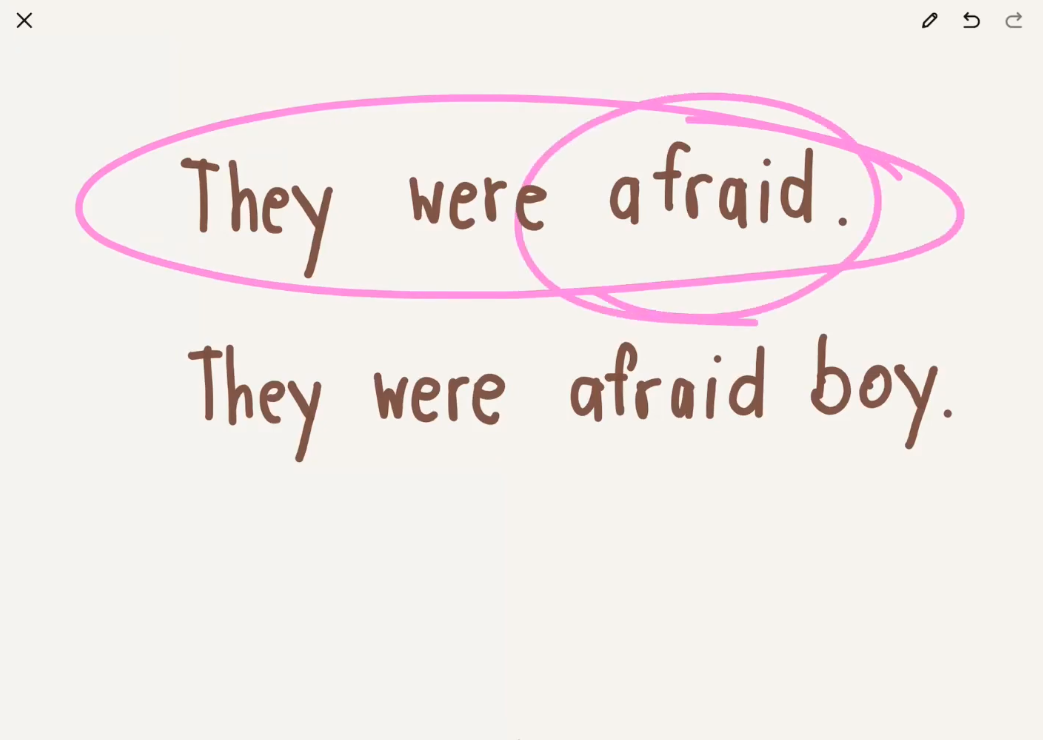 They were afraid.
They were afraid boy.